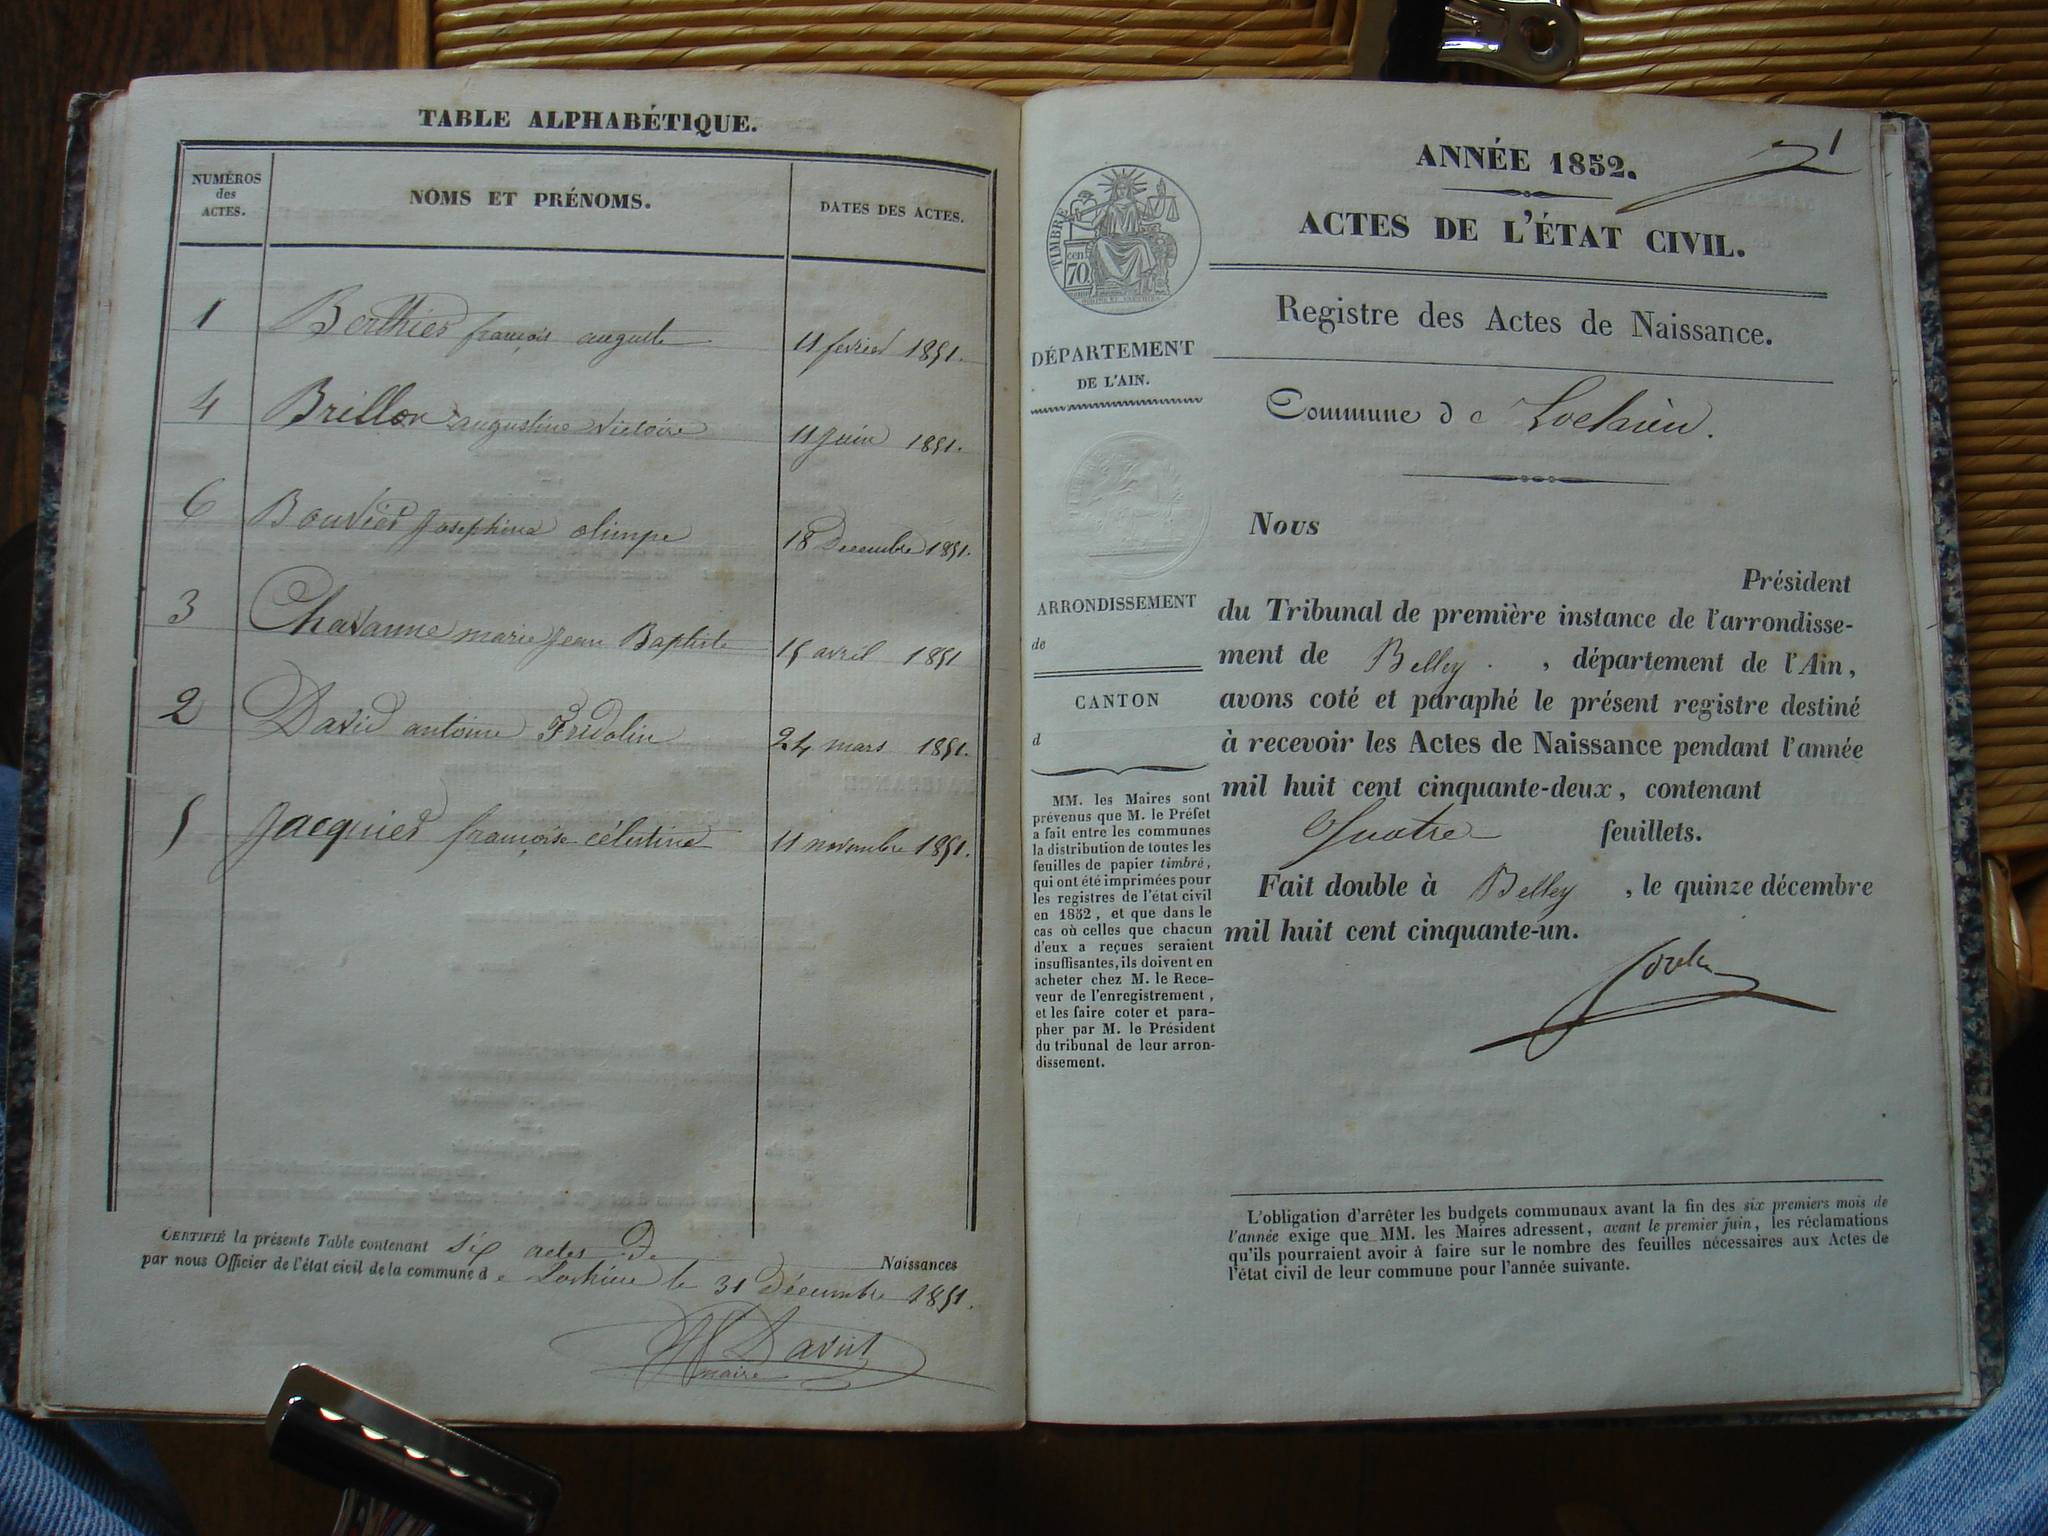 TABLE ALPHABÉTIQUE.
NUMÉROS
des
ACTES.
NOMS ET PRÉNOMS.
DATES DES ACTES.
1 Berthier françois auguste 11 fevrier 1851.
4 Brillon augustine victoire 11 juin 1851.
6 Bouvier Josephine olimpe 18 Decembre 1851.
3 Chavanne marie Jean Baptiste 15 avril 1851
2 David antoine Fridolin 24 mars 1851.
5 Jacquier françoise célestine 11 novembre 1851.
CERTIFIÉ la présente Table contenant six actes de Naissances
par nous Officier de l'état civil de la commune de Lochieu le 31 Décembre 1851.
David
maire
1
ANNÉE 1852.
ACTES DE L'ÉTAT CIVIL.
TIMBRE
cen
70.
Registre des Actes de Naissance.
DÉPARTEMENT
DE L'AIN.
Commune de Lochieu.
Nous
Président
du Tribunal de première instance de l'arrondisse-
ment de Belley. , département de l'Ain,
avons coté et paraphé le présent registre destiné
à recevoir les Actes de Naissance pendant l'année
mil huit cent cinquante-deux, contenant
Quatre feuillets.
Fait double à Belley , le quinze décembre
mil huit cent cinquante-un.
ARRONDISSEMENT
de
CANTON
d
MM. les Maires sont
prévenus que M. le Préfet
a fait entre les communes
la distribution de toutes les
feuilles de papier timbré,
qui ont été imprimées pour
les registres de l'état civil
en 1852, et que dans le
cas où celles que chacun
d'eux a reçues seraient
insuffisantes, ils doivent en
acheter chez M. le Rece-
veur de l'enregistrement,
et les faire coter et para-
pher par M. le Président
du tribunal de leur arron-
dissement.
L'obligation d'arrêter les budgets communaux avant la fin des six premiers mois de
l'année exige que MM. les Maires adressent, avant le premier juin, les réclamations
qu'ils pourraient avoir à faire sur le nombre des feuilles nécessaires aux Actes de
l'état civil de leur commune pour l'année suivante.